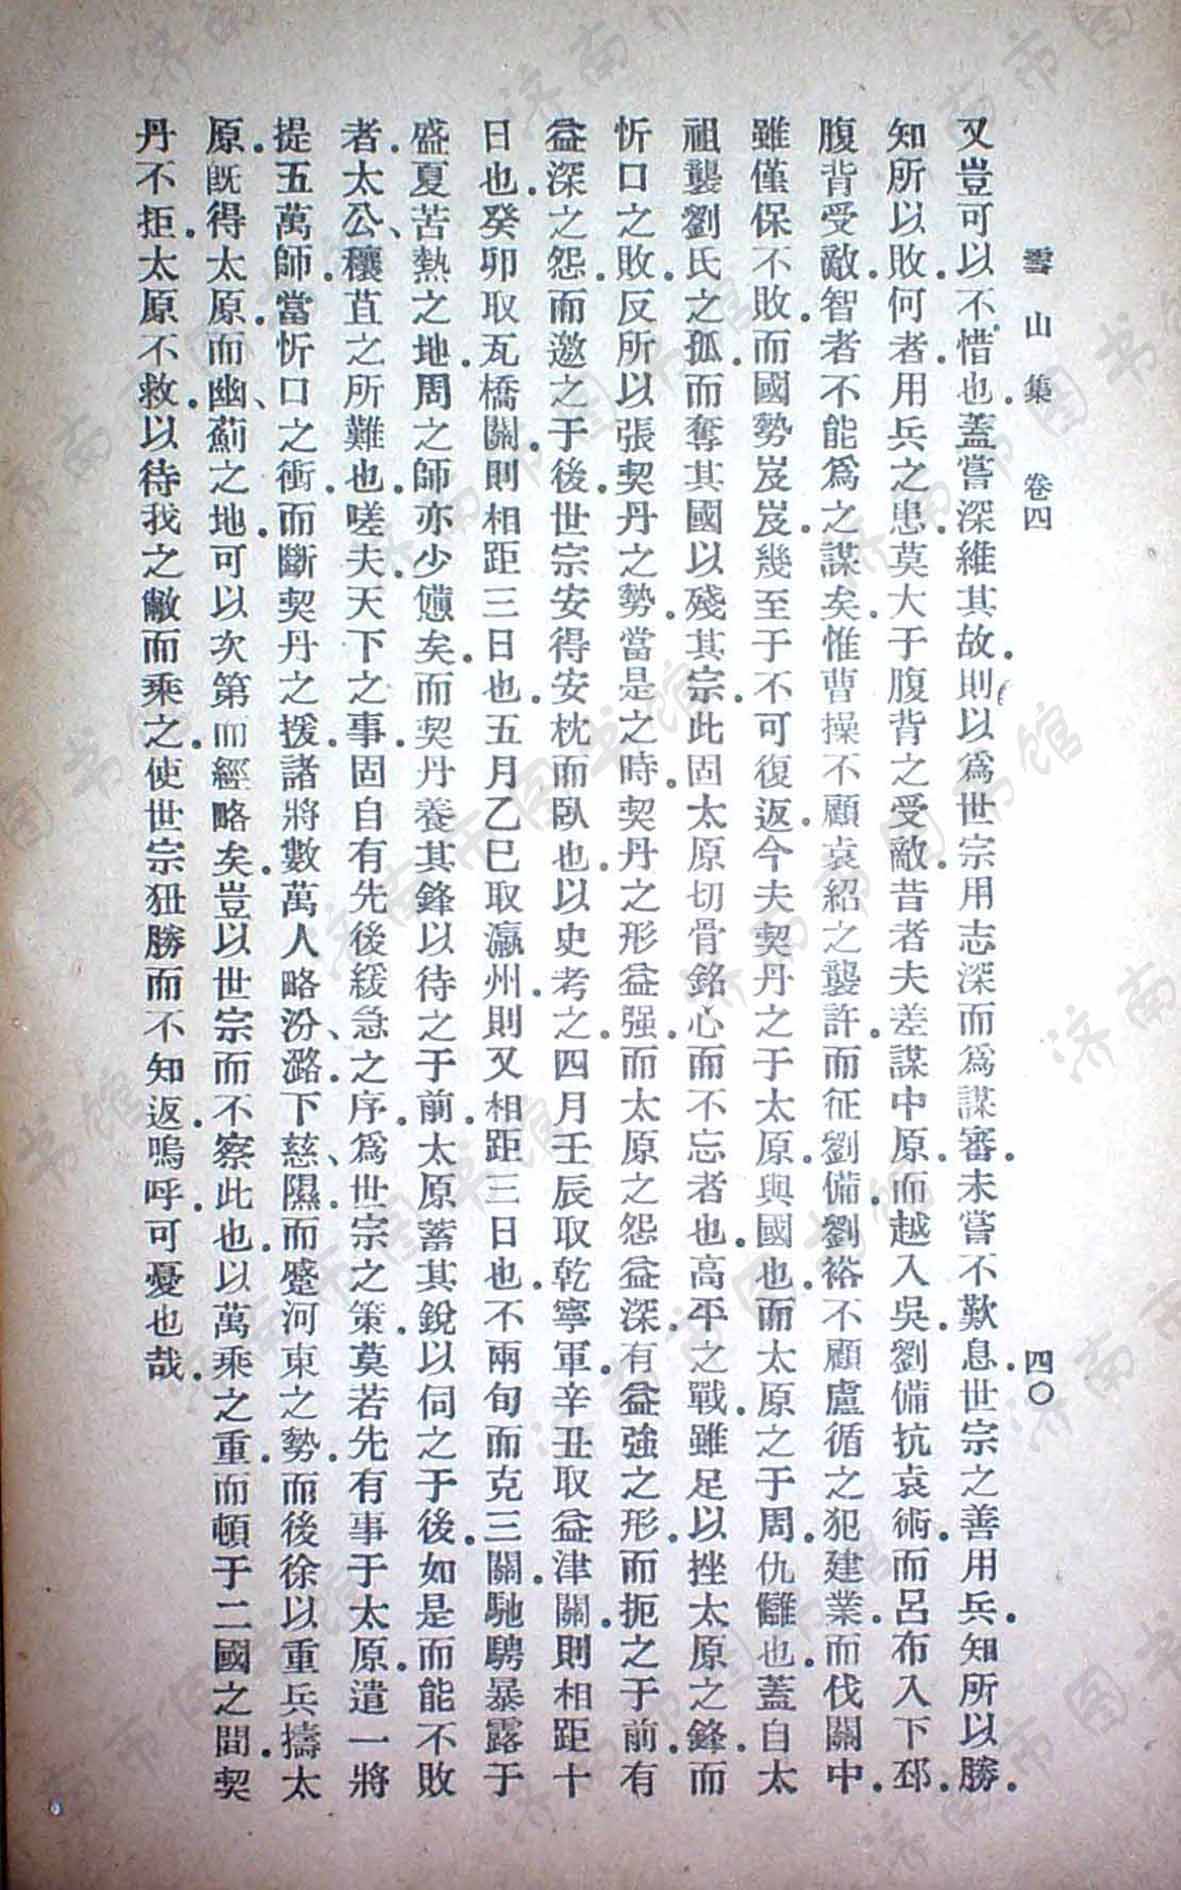 雪山集　卷四　四〇
又豈可以不惜也.蓋嘗深維其故.則以爲世宗用志深而爲謀審.未嘗不歎息.世宗之善用兵.知所以勝.
知所以敗.何者.用兵之患.莫大于腹背之受敵.昔者夫差謀中原.而越入吳.劉備抗袁術.而呂布入下邳.
腹背受敵.智者不能爲之謀矣.惟曹操不顧袁紹之襲許.而征劉備.劉裕不顧盧循之犯建業.而伐關中.
雖僅保不敗.而國勢岌岌幾至于不可復返.今夫契丹之于太原.與國也.而太原之于周.仇讎也.蓋自太
祖襲劉氏之孤.而奪其國以殘其宗.此固太原切骨銘心而不忘者也.高平之戰.雖足以挫太原之鋒.而
忻口之敗.反所以張契丹之勢.當是之時.契丹之形益强.而太原之怨益深.有益強之形.而扼之于前.有
益深之怨.而邀之于後.世宗安得安枕而臥也.以史考之.四月壬辰取乾寧軍.辛丑取益津關.則相距十
日也.癸卯取瓦橋關.則相距三日也.五月乙巳取瀛州.則又相距三日也.不兩旬而克三關.馳騁暴露于
盛夏苦熱之地.周之師亦少憊矣.而契丹養其鋒以待之于前.太原蓄其銳以伺之于後.如是而能不敗
者.太公、穰苴之所難也.嗟夫.天下之事.固自有先後緩急之序.爲世宗之策.莫若先有事于太原.遣一將
提五萬師.當忻口之衝.而斷契丹之援.諸將數萬人略汾、潞.下慈、隰.而蹙河東之勢.而後徐以重兵擣太
原.既得太原.而幽、薊之地.可以次第而經略矣.豈以世宗而不察此也.以萬乘之重.而頓于二國之間.契
丹不拒.太原不救.以待我之敝而乘之.使世宗狃勝而不知返.嗚呼.可憂也哉.
济南市图书馆